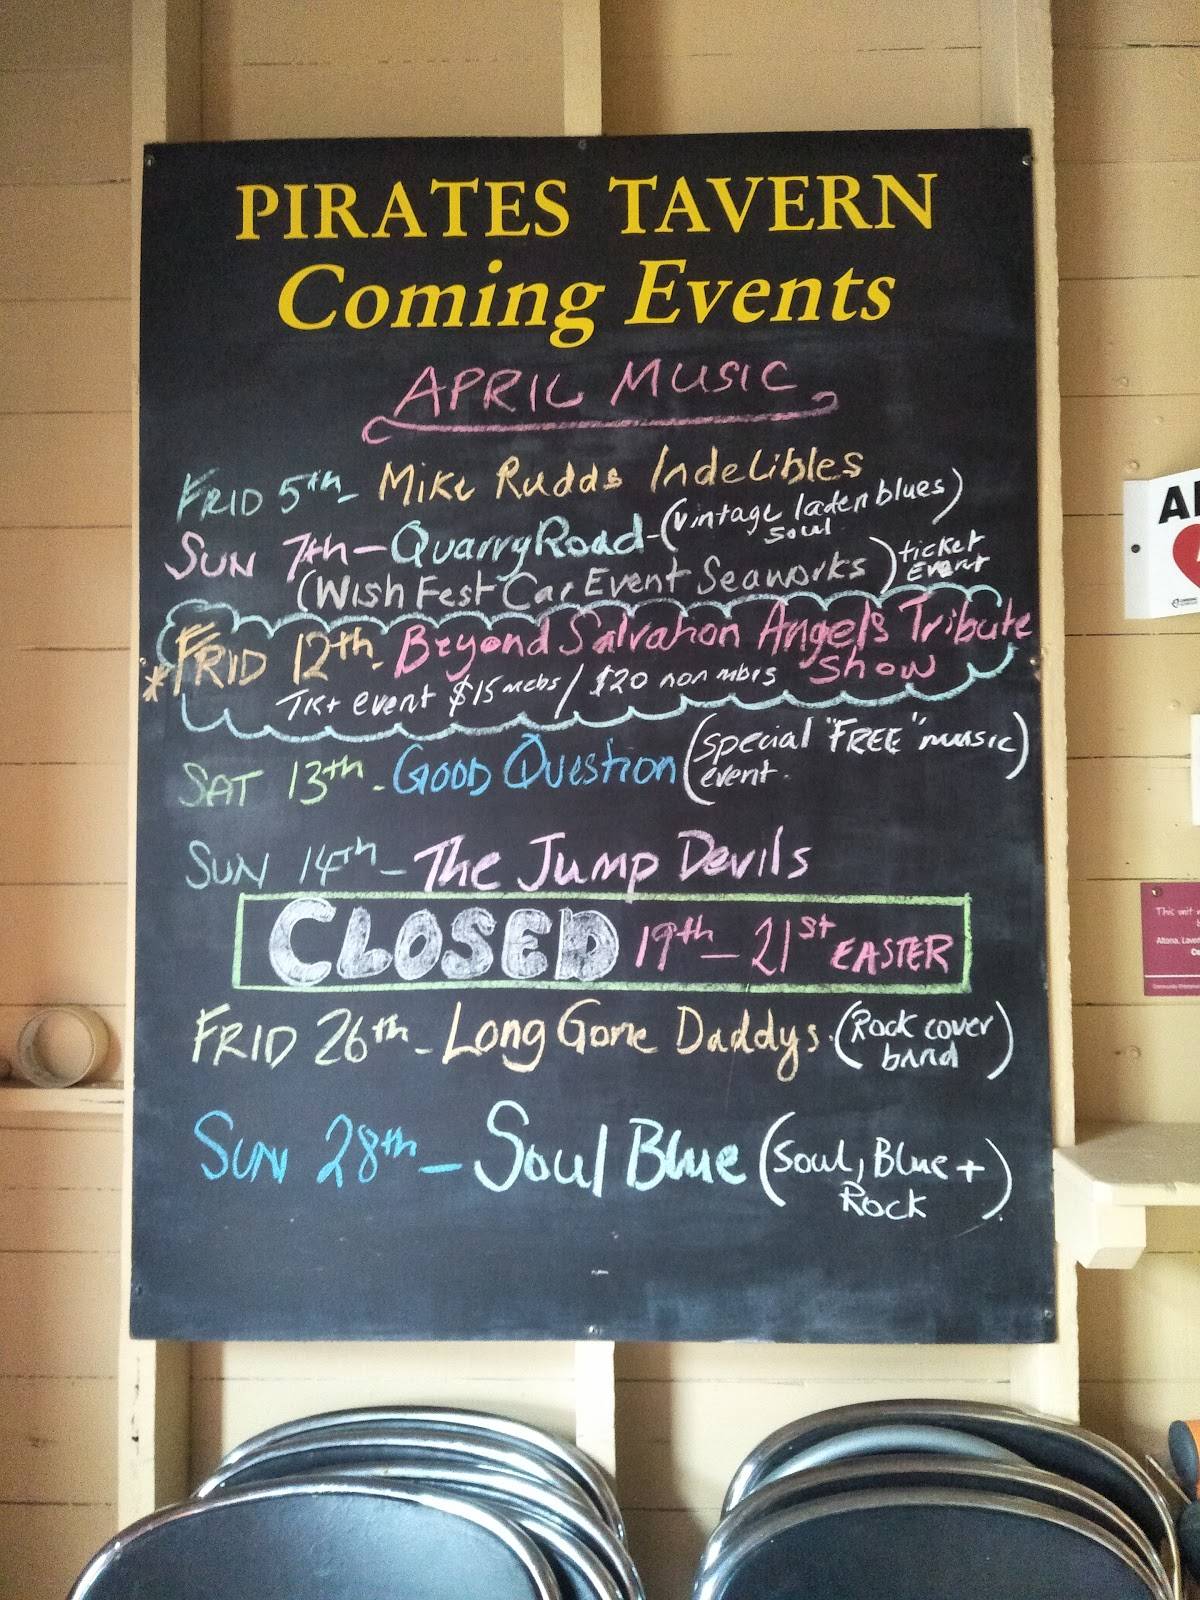 PIRATES TAVERN
Coming Events
APRIL MUSIC
FRID 5th - Mike Rudds Indelibles
SUN 7th - Quarry Road - (vintage laden blues)
soul
(Wish Fest Car Event Seaworks) ticket
Event
*FRID 12th - Beyond Salvation Angels Tribute
Show
TKt event $15 mebs / $20 non mbrs
SAT 13th - GOOD Question (special "FREE" music)
event.
SUN 14th - The Jump Devils
CLOSED 19th - 21st EASTER
FRID 26th - Long Gone Daddys. (Rock cover)
band
SUN 28th - Soul Blue (Soul, Blue +)
Rock
This unit
Altona,